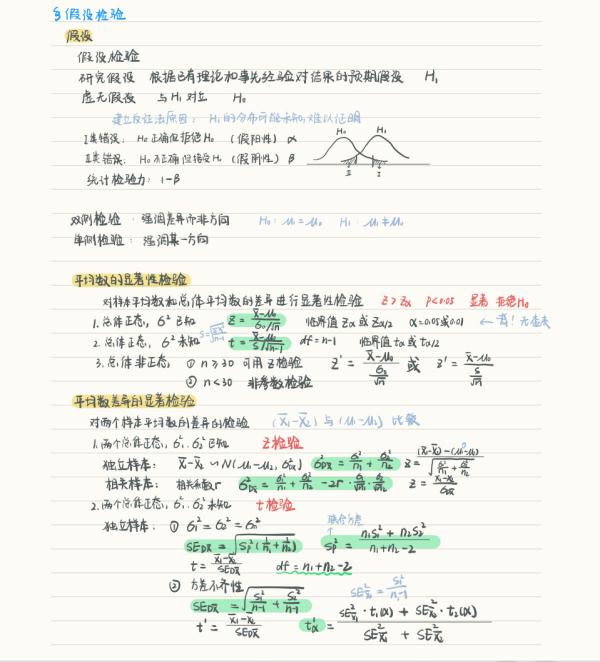 § 假设检验
假设
假设检验
研究假设 根据已有理论和事先经验对结果的预期假设 H₁
虚无假设 与H₁对立 H₀
建立反证法原因：H₁的分布可能未知,难以证明
I类错误：H₀正确但拒绝H₀ （假阳性） α
II类错误：H₀不正确但接受H₀ （假阴性） β
H₀ H₁
II I
统计检验力：1-β
双侧检验：强调差异而非方向 H₀：μ₁=μ₀ H₁：μ₁≠μ₀
单侧检验：强调某一方向
平均数的显著性检验
对样本平均数和总体平均数的差异进行显著性检验 Z>Zα P<0.05 显著 拒绝H₀
1.总体正态，σ²已知 Z = (X̄-μ₀)/(σ₀/√n) 临界值 Zα或Zα/2 α=0.05或0.01
2.总体正态，σ²未知 t = (X̄-μ₀)/(S/√n-1) df=n-1 临界值tα或tα/2
3.总体非正态，① n≥30 可用Z检验 Z' = (X̄-μ₀)/(σ₀/√n) 或 Z' = (X̄-μ₀)/(S/√n)
② n<30 非参数检验
平均数差异的显著性检验
对两个样本平均数的差异的检验 (X̄₁-X̄₂)与(μ₁-μ₂)比较
1.两个总体正态，σ₁²、σ₂²已知 Z检验
独立样本： X̄₁-X̄₂ ~ N(μ₁-μ₂, σ²DX̄) σ²DX̄ = σ₁²/n₁ + σ₂²/n₂ Z = ((X̄₁-X̄₂)-(μ₁-μ₂))/√(σ₁²/n₁ + σ₂²/n₂)
相关样本： 相关系数r σ²DX̄ = σ₁²/n₁ + σ₂²/n₂ - 2r·σ₁/√n₁·σ₂/√n₂ Z = (X̄₁-X̄₂)/σDX̄
2.两个总体正态，σ₁²、σ₂²未知 t检验
联合方差
独立样本： ① σ₁²=σ₂²=σ₀²
SEDX̄ = √(Sp²(1/n₁+1/n₂)) Sp² = (n₁S₁²+n₂S₂²)/(n₁+n₂-2)
t = (X̄₁-X̄₂)/SEDX̄ df=n₁+n₂-2
② 方差不齐性 SE²X̄₁ = S₁²/(n₁-1)
SEDX̄ = √(S₁²/(n₁-1) + S₂²/(n₂-1))
t' = (X̄₁-X̄₂)/SEDX̄ t'α = (SE²X̄₁·t₁(α) + SE²X̄₂·t₂(α))/(SE²X̄₁ + SE²X̄₂)